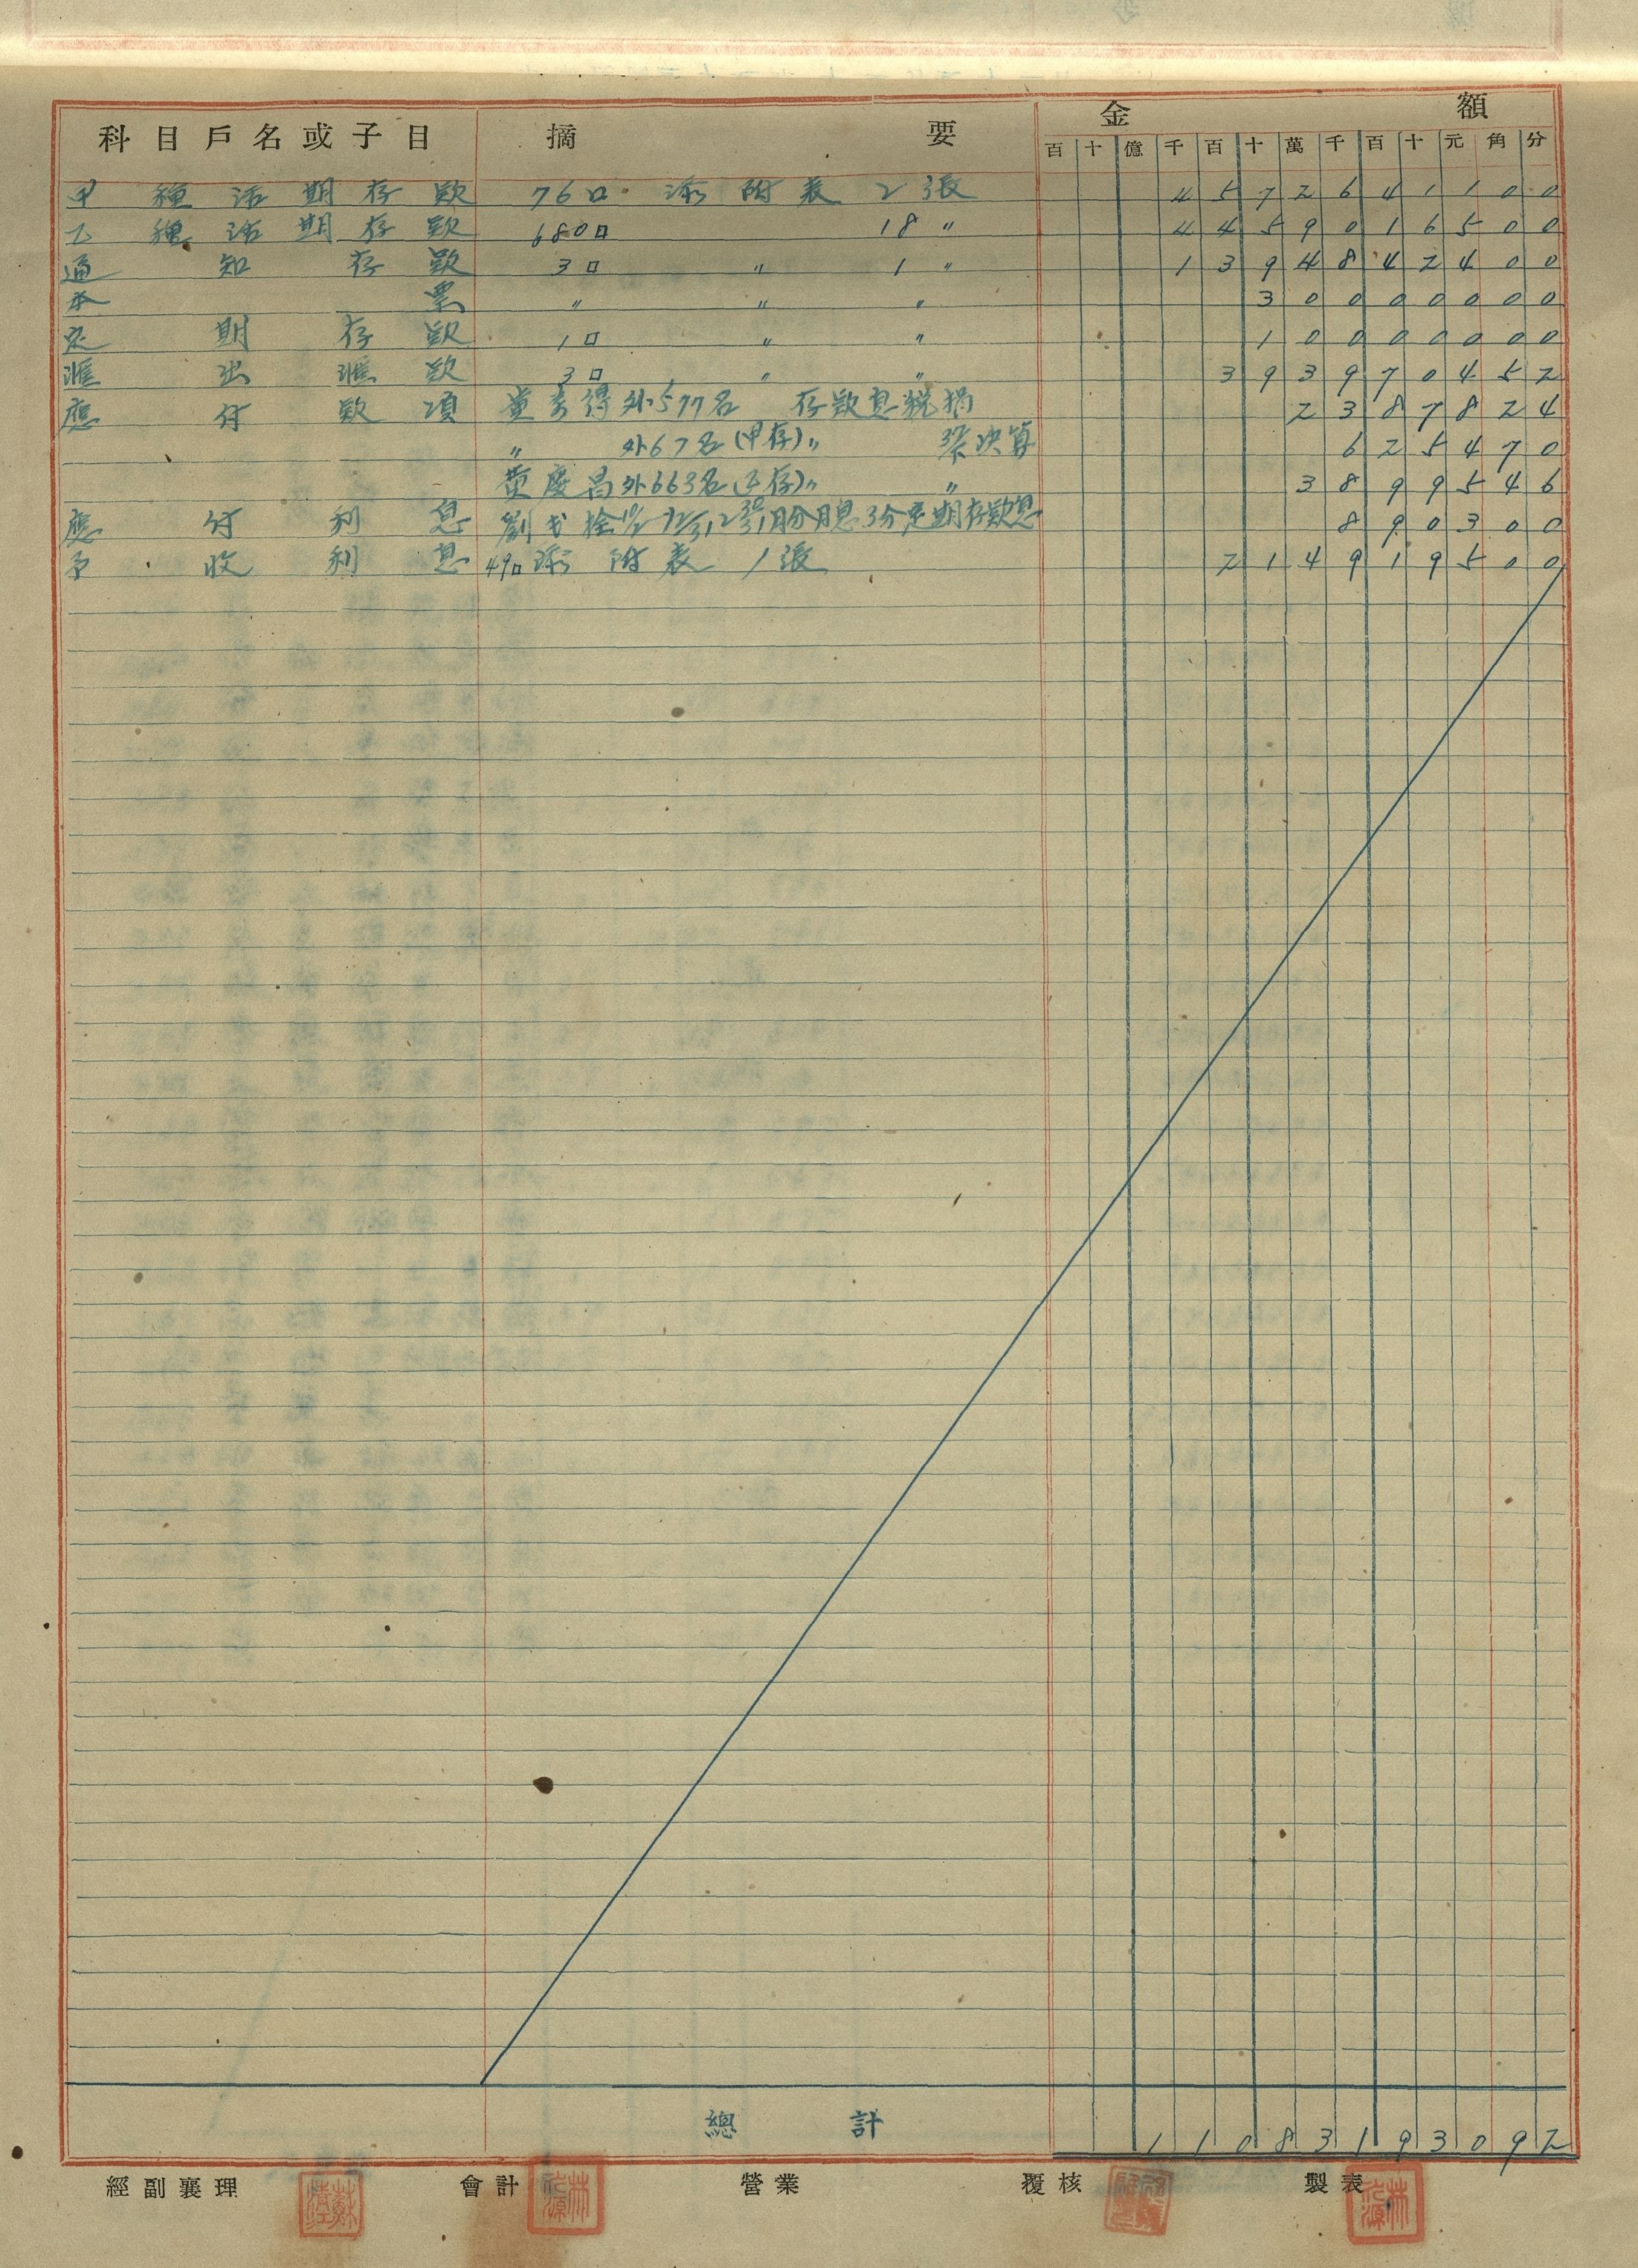 科目戶名或子目 摘要 金額
百 十 億 千 百 十 萬 千 百 十 元 角 分
甲種活期存款 76口 添附表 2張 4572641100
乙種活期存款 680口 18〃 4459016500
通知存款 3口 〃 1〃 1394842400
本票 〃 〃 〃 30000000
定期存款 1口 〃 〃 10000000
匯出匯款 3口 〃 〃 393970452
應付款項 黃 得外577名 存款息稅捐 2387824
〃 外67名(甲存)〃 決算 625470
黃慶昌外663名(乙存)〃 〃 3899546
應付利息 劉 栓 月分月息3分定期存款息 890300
予收利息 49口添附表1張 214919500
總計 11083193092
經副襄理 會計 營業 覆核 製表